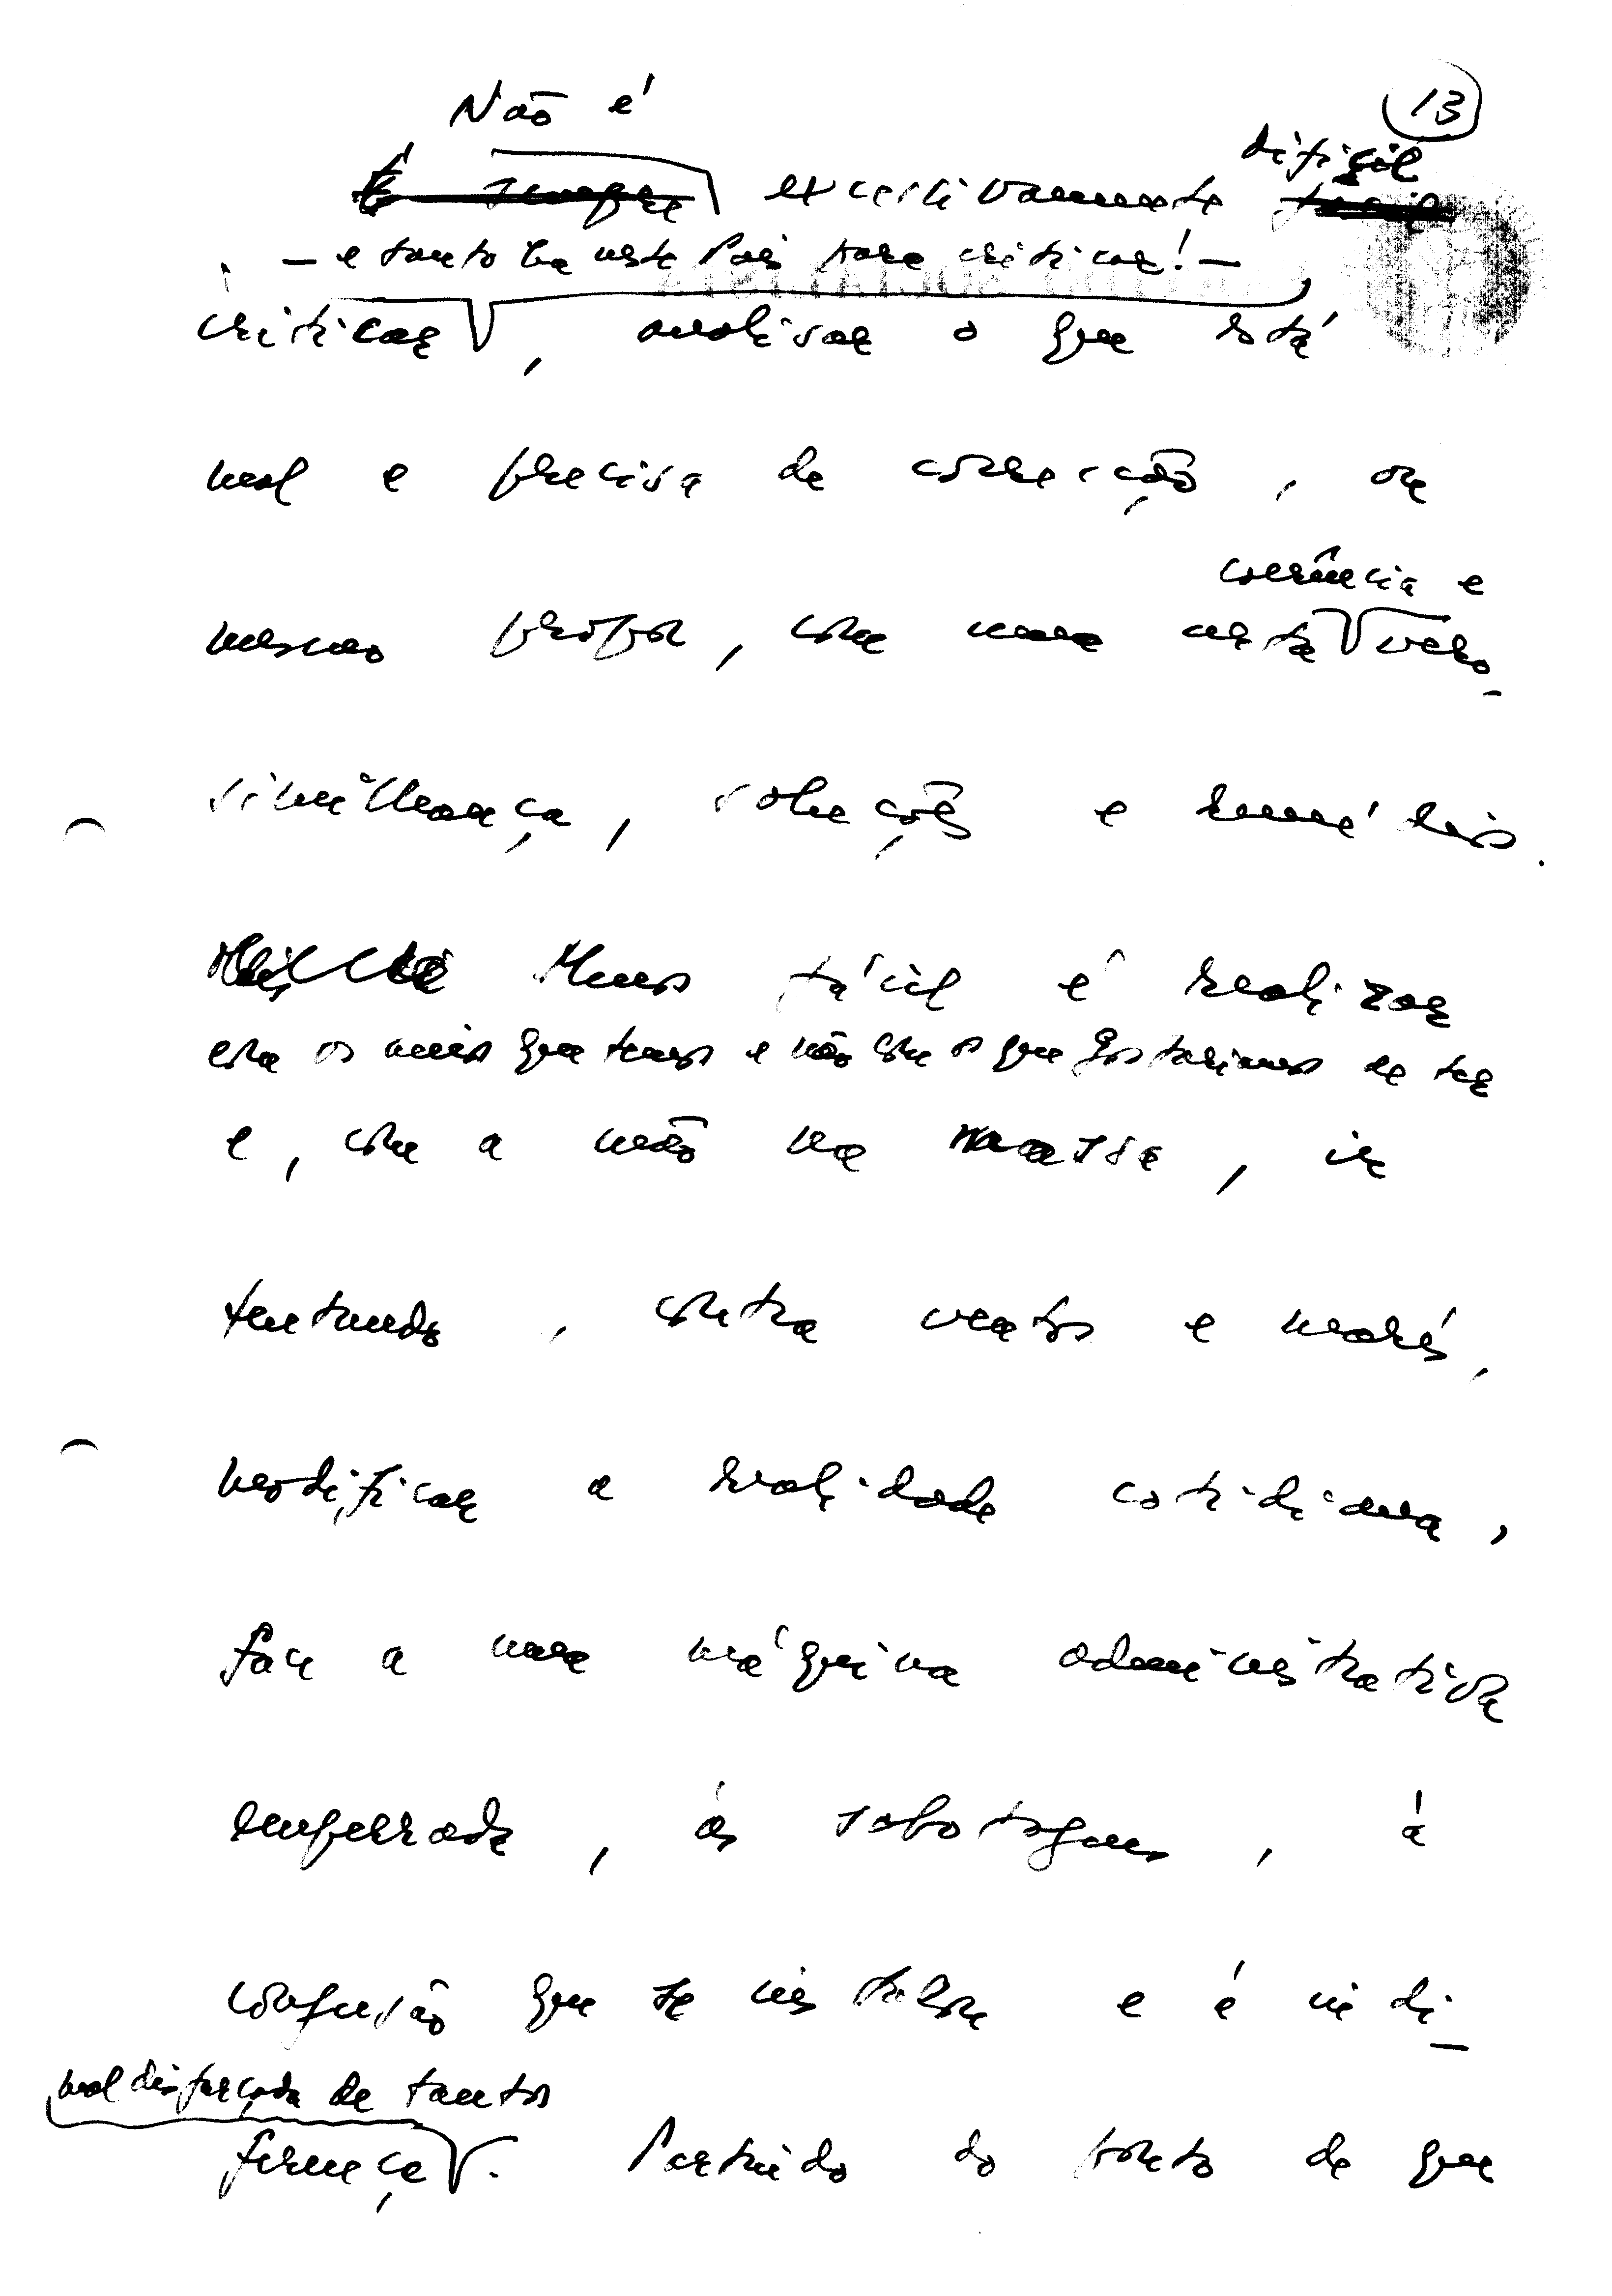 13
Não é
difícil
É sempre excessivamente fácil
— e tanto há neste País para criticar! —
criticar, analisar o que está
mal e precisa de correcção, ou
mesmo propor, com uma certa
coerência e
vero-
similhança, soluções e remédios.
Menos fácil é realizar
com os meios que temos e não com os que gostaríamos de ter
e, com a mão na massa, ir
tentando, contra ventos e marés,
modificar a realidade cotidiana,
face a uma máquina administrativa
emperrada, às sabotagens, à
confusão que se instalou e à indi-
mal disfarçada de tantos
ferença. Partindo do ponto de que